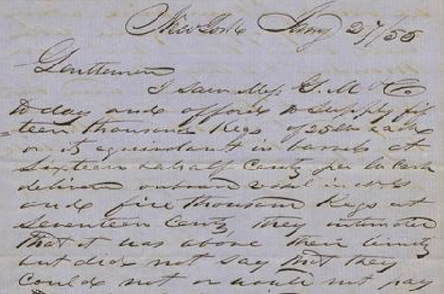 New York Jany 27/55
Gentlemen
I saw Mess G. M & Co
to day and offered to supply fif
=teen thousand Kegs of 25 lbs each
or its equivalent in barrels at
Sixteen & a half Cents per lb Cash
deliver on board vessel in
and five thousand Kegs at
Seventeen Cents, they intimated
that it was above their limits
but did not say that they
could not or would not pay